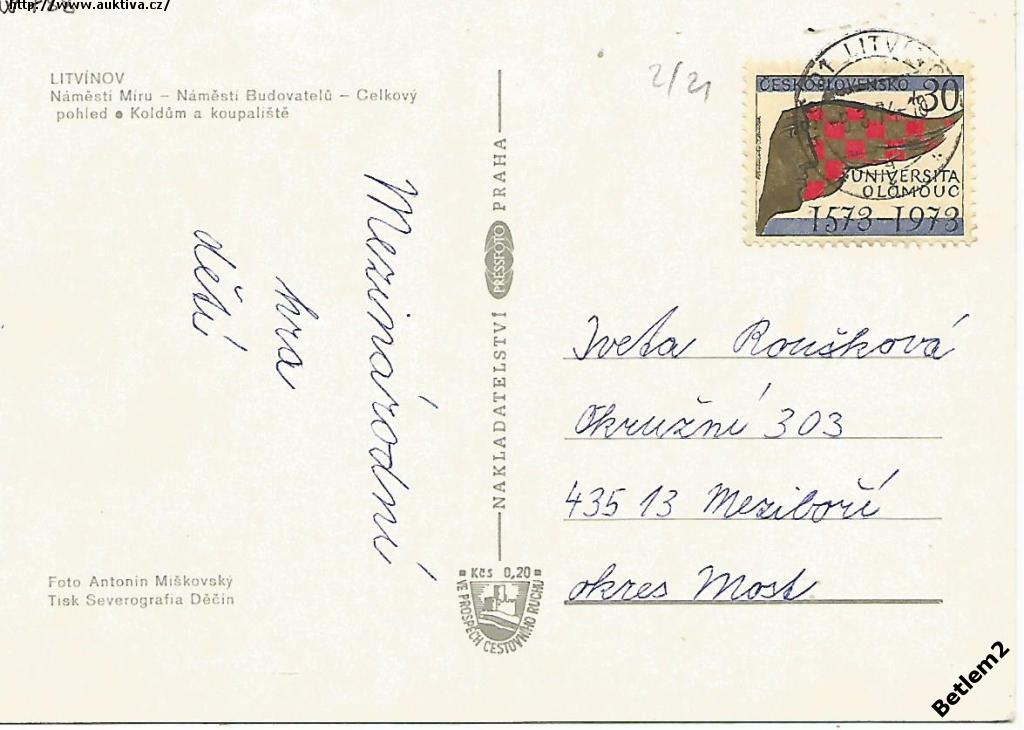 http://www.auktiva.cz/
LITVÍNOV
Náměstí Míru – Náměstí Budovatelů – Celkový
pohled ● Koldům a koupaliště
2/21
Mezinárodní
hra
dětí
Foto Antonín Miškovský
Tisk Severografia Děčín
NAKLADATELSTVÍ PRESSFOTO PRAHA
Kčs 0,20
VE PROSPĚCH CESTOVNÍHO RUCHU
LITVÍNOV
ČESKOSLOVENSKO
30
UNIVERSITA
OLOMOUC
1573–1973
Iveta Roušková
Okružní 303
435 13 Meziboří
okres Most
Betlem2